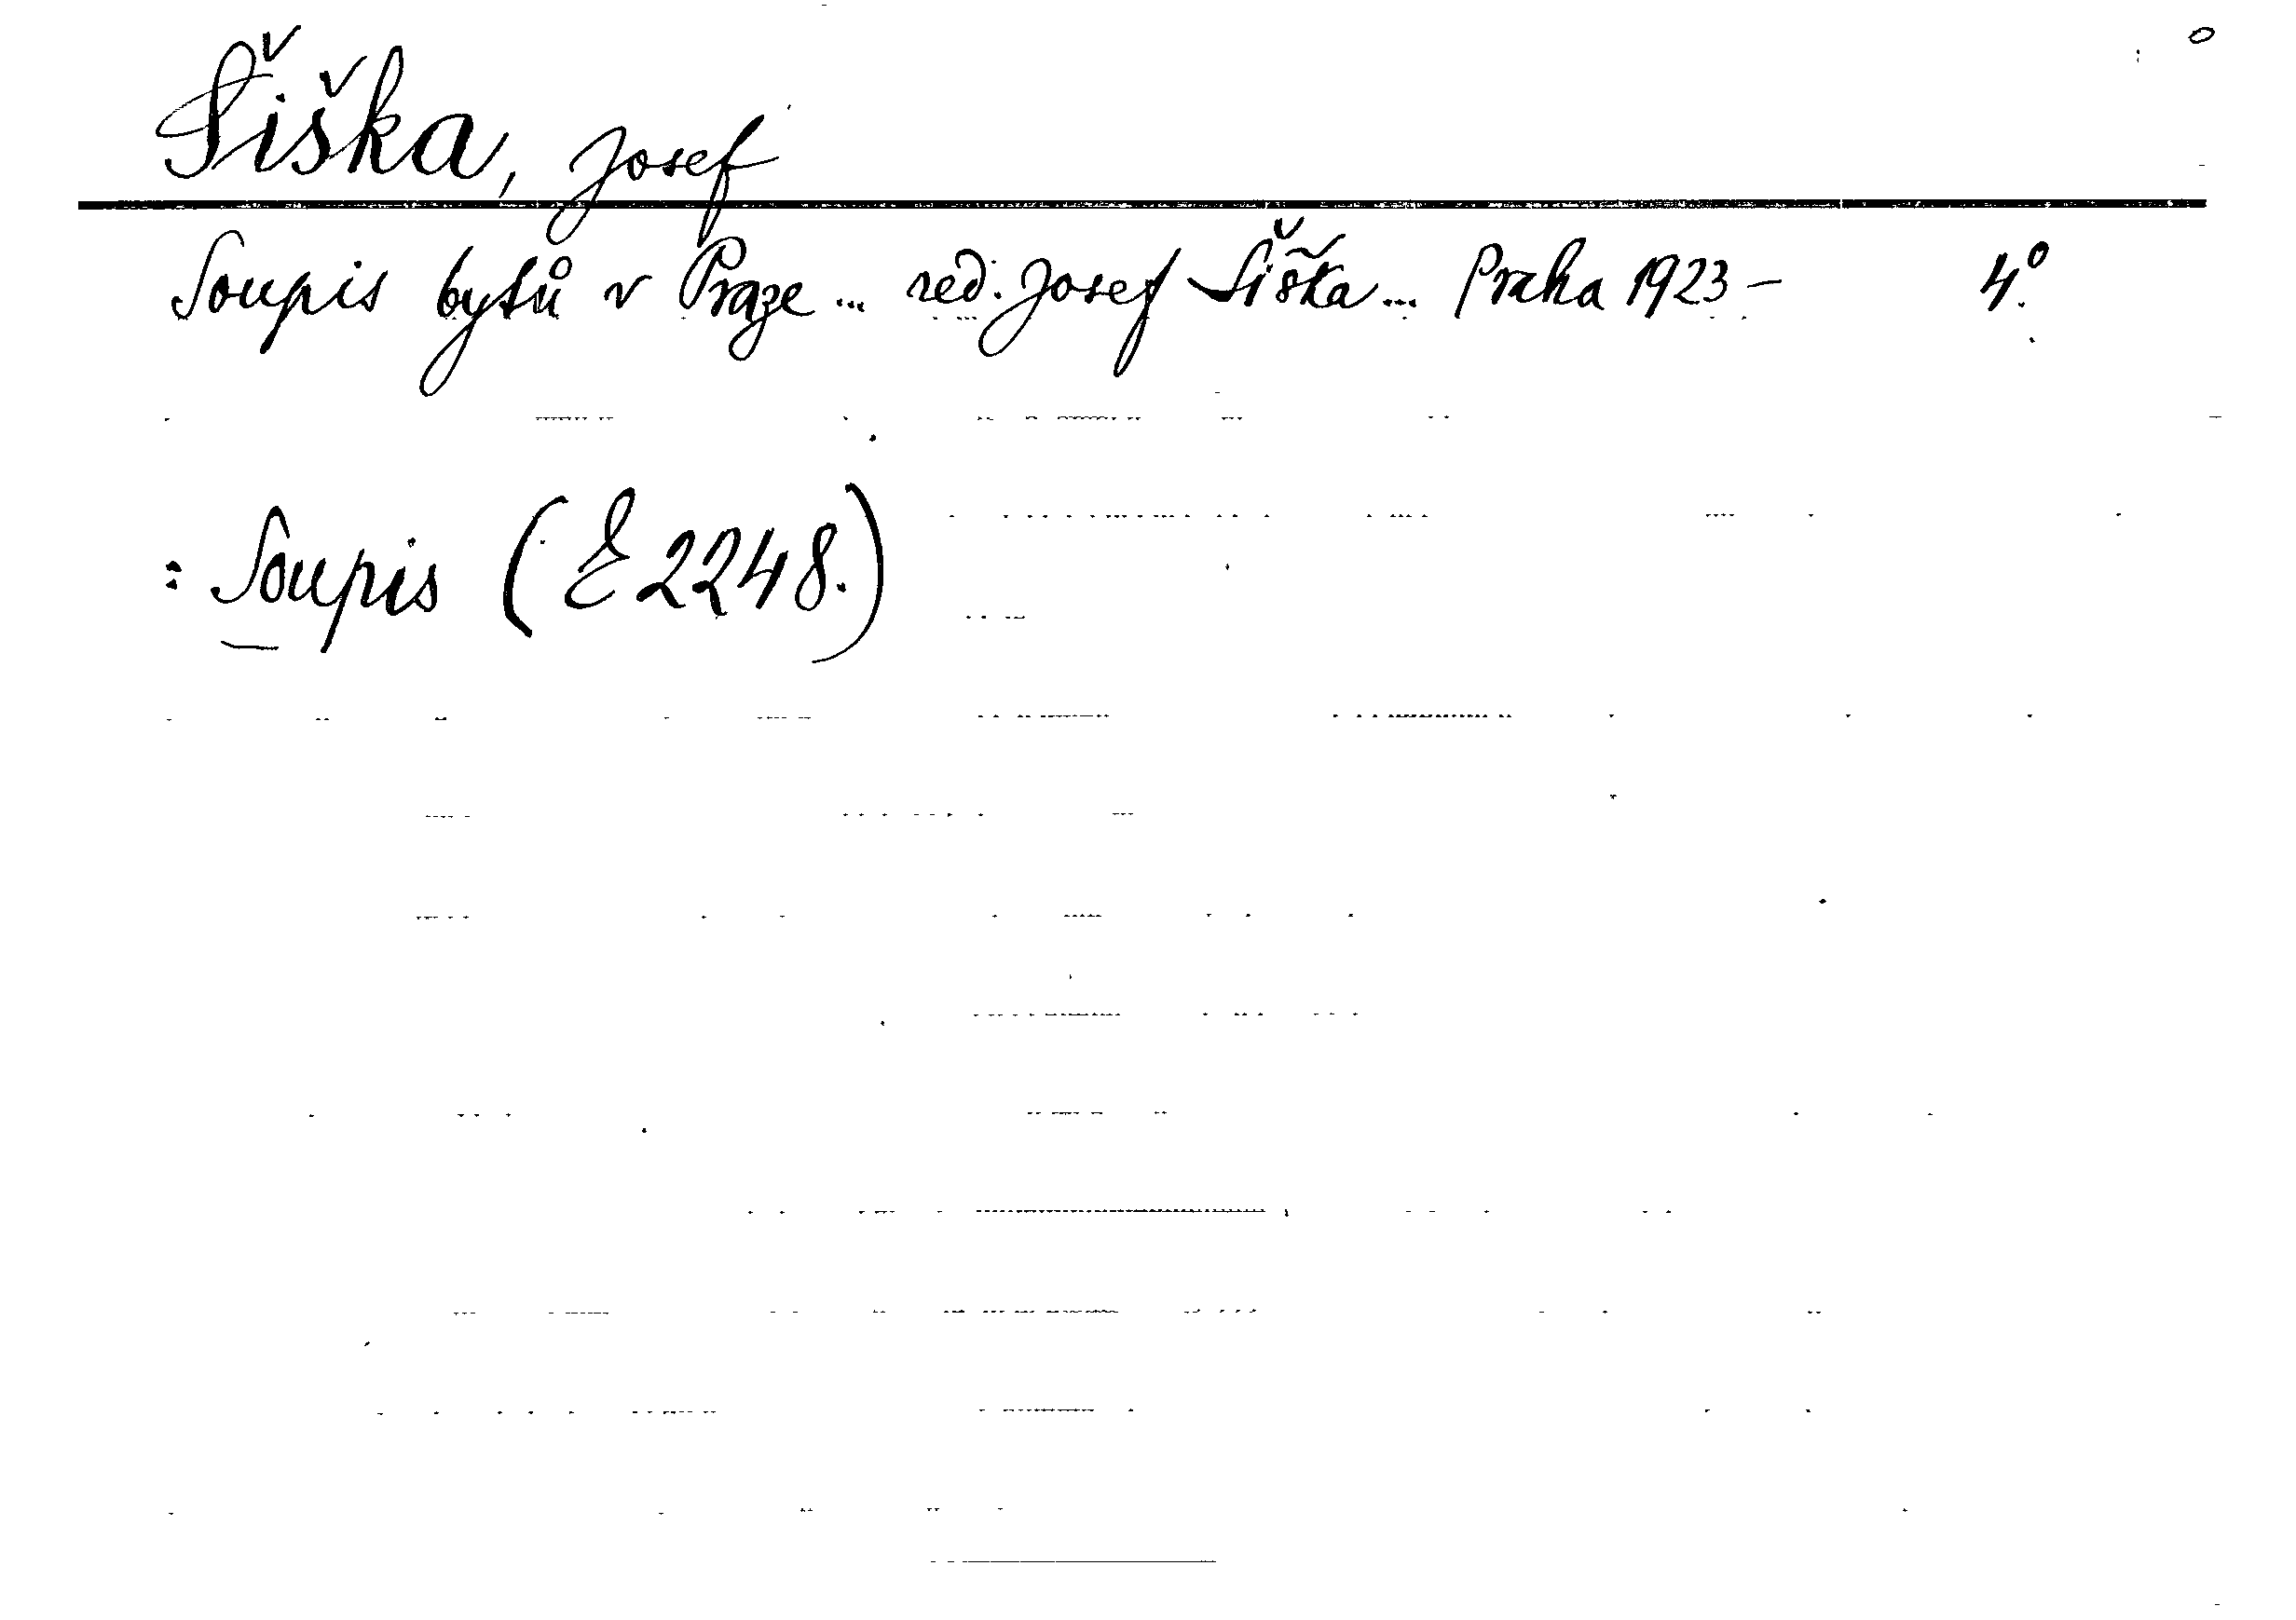 Šiška, Josef
Soupis bytů v Praze ... red. Josef Šiška ... Praha 1923 – 4°.
: Soupis (E 2248.)